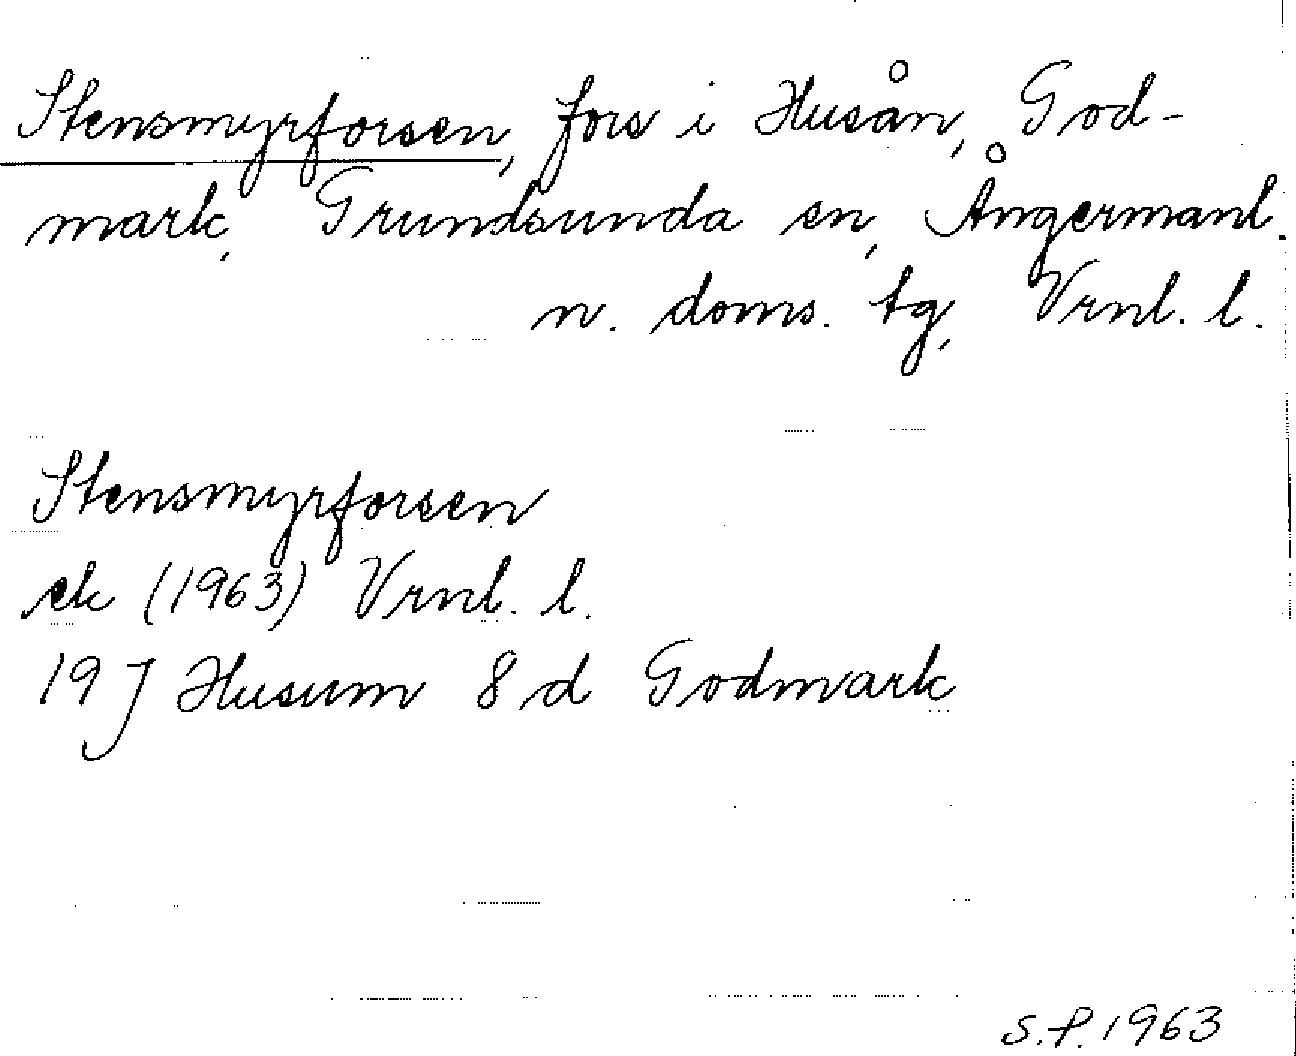 Stensmyrforsen, fors i Husån, God-
mark, Grundsunda sn, Ångermanl.
n. doms. tg, Vrnl. l.
Stensmyrforsen
ek (1963) Vrnl. l.
19 J Husum 8 d Godmark
S.P. 1963